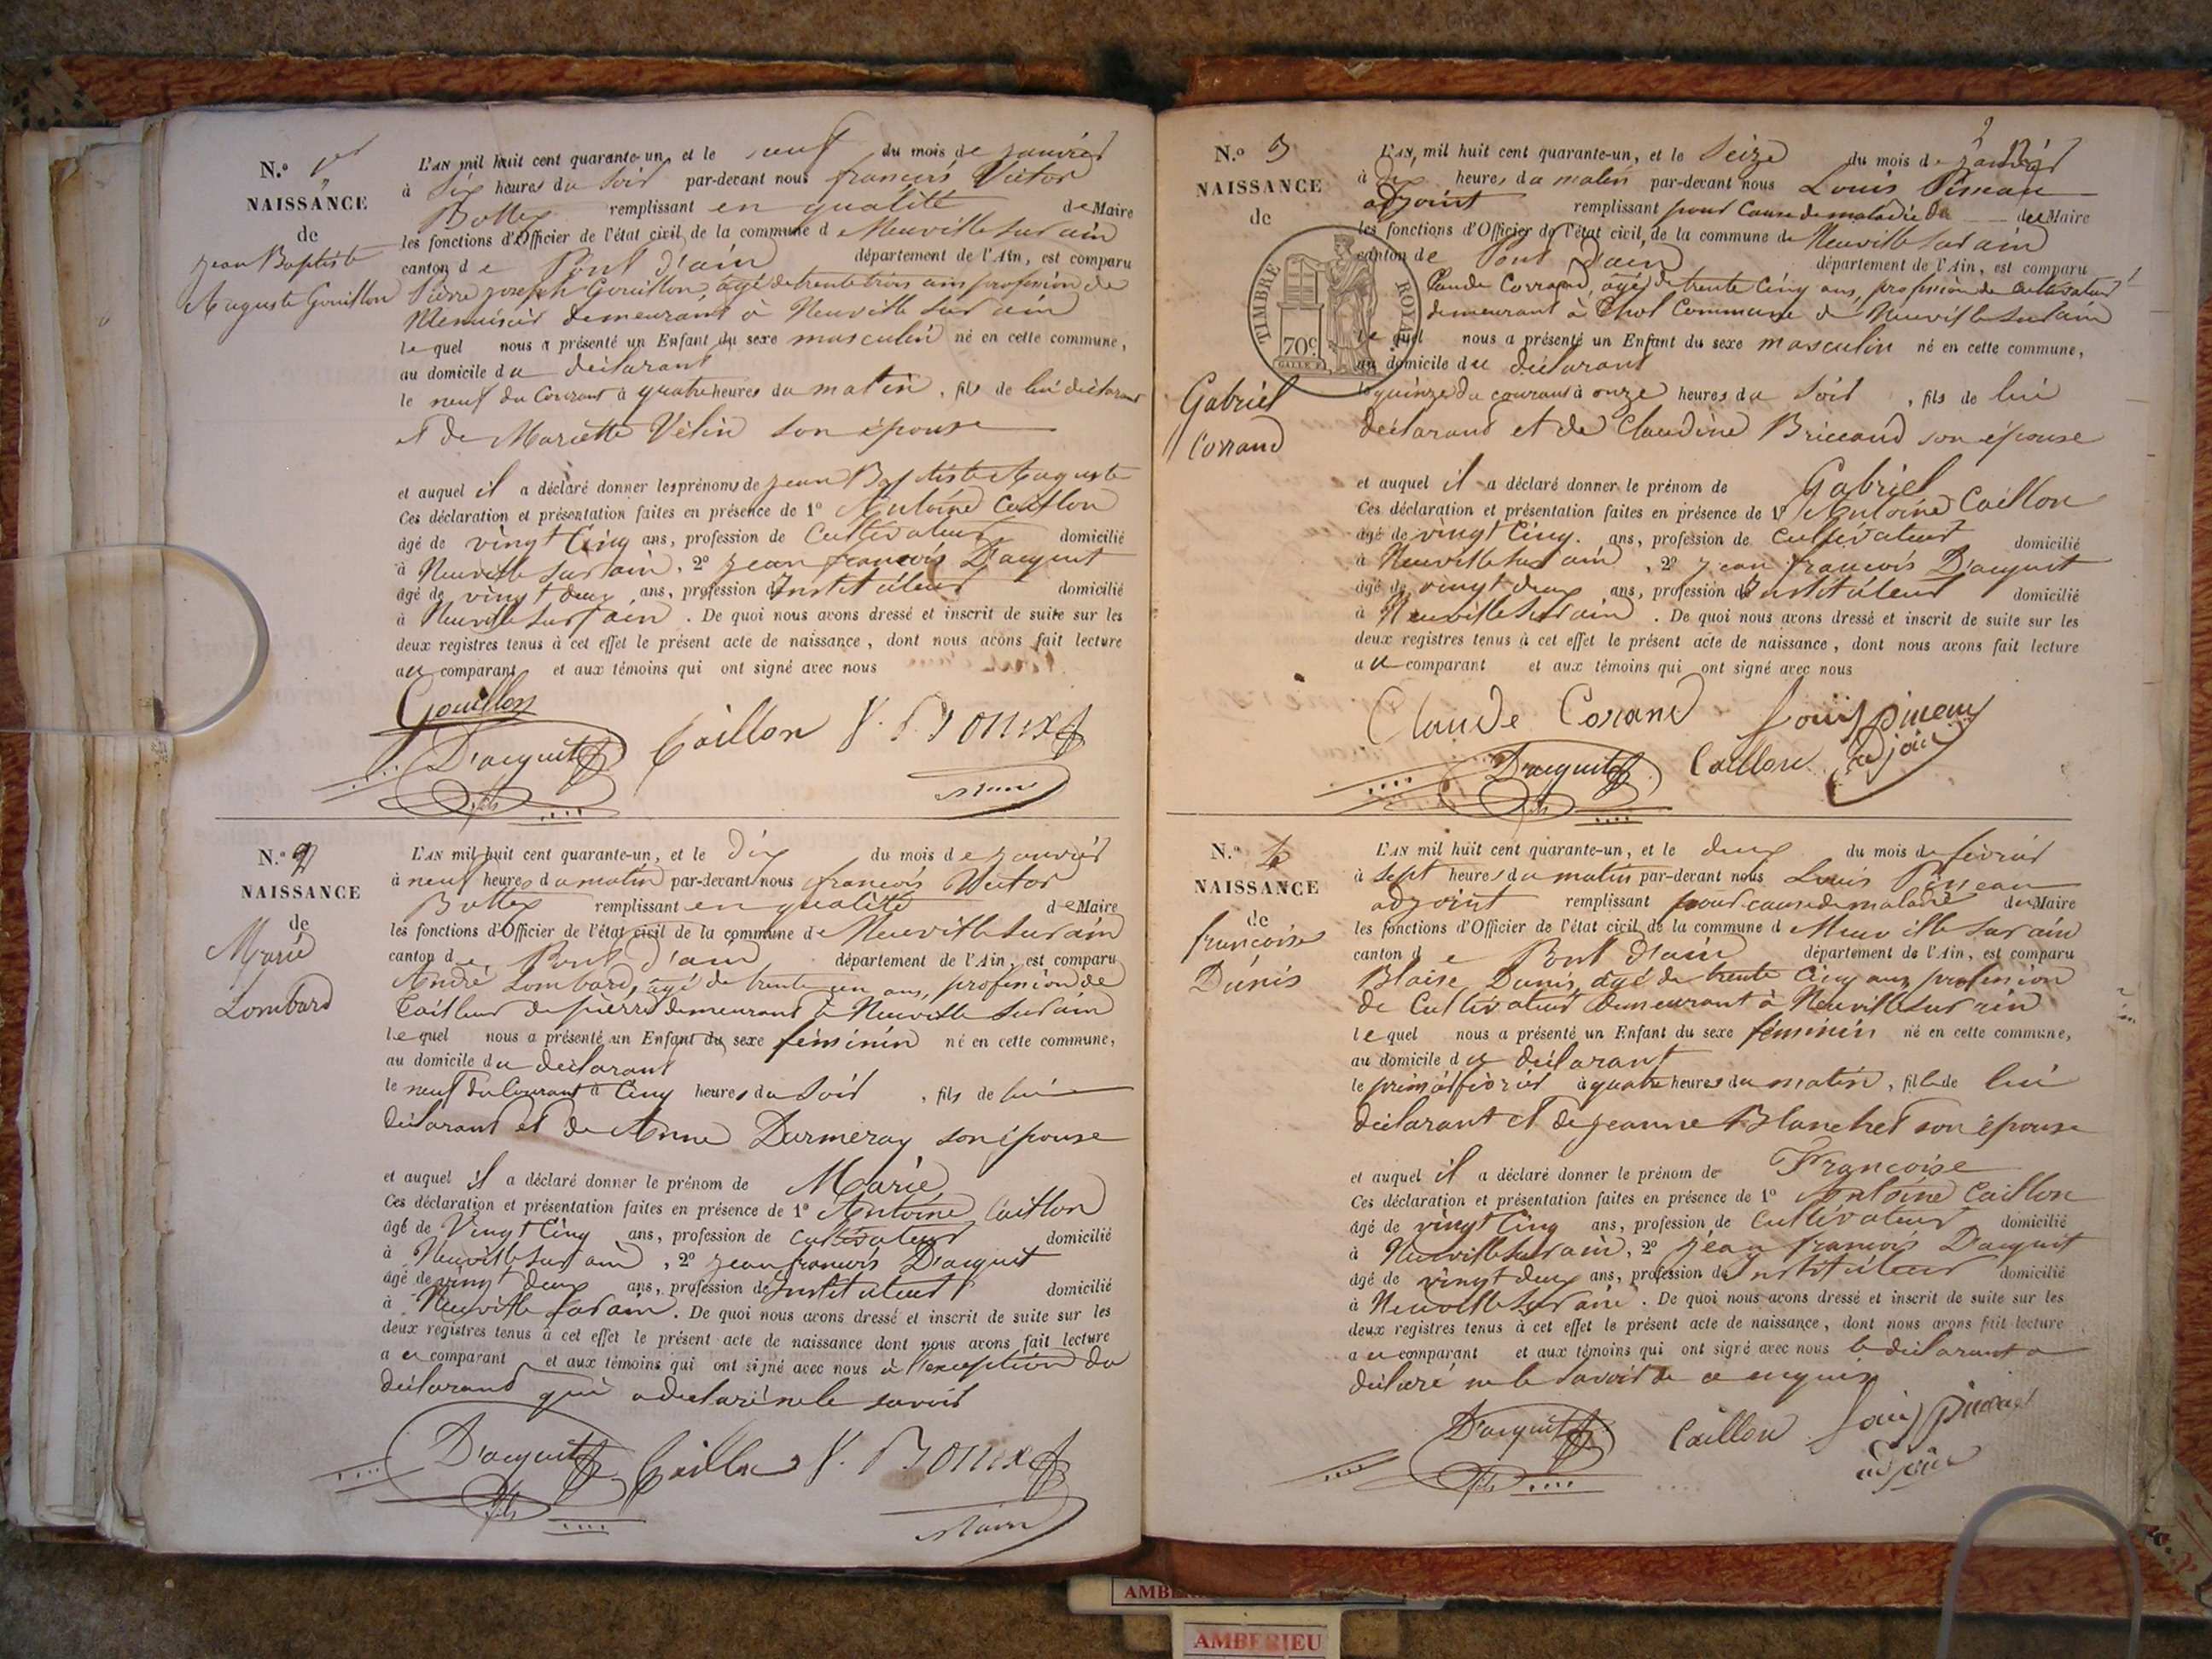 N.o 1er
NAISSANCE
de
Jean Baptiste
Auguste Gouillon
L'AN mil huit cent quarante-un, et le neuf du mois de janvier
à six heures du soir par-devant nous françois Victor
Bottex remplissant en qualité de Maire
les fonctions d'Officier de l'état civil, de la commune de Neuville sur ain
canton de Pont d'ain département de l'Ain, est comparu
Pierre joseph Gouillon, agé de trente trois ans profession de
Menuisier demeurant à Neuville sur ain
lequel nous a présenté un Enfant du sexe masculin né en cette commune,
au domicile du déclarant
le neuf du Courant à quatre heures du matin, fils de lui déclarant
et de Mariette Vélin son épouse
et auquel il a déclaré donner les prénoms de jean Baptiste Auguste
Ces déclaration et présentation faites en présence de 1o Antoine Caillon
âgé de vingt Cinq ans, profession de Cultivateur domicilié
à Neuville sur ain, 2o jean françois D'acquit
âgé de vingt deux ans, profession d'Instituteur domicilié
à Neuville sur ain. De quoi nous avons dressé et inscrit de suite sur les
deux registres tenus à cet effet le présent acte de naissance, dont nous avons fait lecture
au comparant et aux témoins qui ont signé avec nous
Gouillon
D'acquit Caillon V. Bottex
fils Maire
N.o 2
NAISSANCE
de
Marie
Lombard
L'AN mil huit cent quarante-un, et le Dix du mois de janvier
à neuf heures du matin par-devant nous françois Victor
Bottex remplissant en qualité de Maire
les fonctions d'Officier de l'état civil de la commune de Neuville sur ain
canton de Pont d'ain département de l'Ain, est comparu
André Lombard, agé de trente un ans, profession de
Tailleur de pierre demeurant à Neuville sur ain
lequel nous a présenté un Enfant du sexe féminin né en cette commune,
au domicile du déclarant
le neuf du Courant à Cinq heures du soir, fils de lui
déclarant et de Anne Durmeray son épouse
et auquel il a déclaré donner le prénom de Marie
Ces déclaration et présentation faites en présence de 1o Antoine Caillon
âgé de Vingt Cinq ans, profession de Cultivateur domicilié
à Neuville sur ain, 2o jean françois D'acquit
âgé de vingt deux ans, profession de Instituteur domicilié
à Neuville sur ain. De quoi nous avons dressé et inscrit de suite sur les
deux registres tenus à cet effet le présent acte de naissance dont nous avons fait lecture
au comparant et aux témoins qui ont signé avec nous à l'exception du
déclarant qui a déclaré ne le savoir
D'acquit Caillon V. Bottex
fils Maire
2
N.o 3
NAISSANCE
de
TIMBRE ROYAL
70c
Gabriel
Corrand
L'AN mil huit cent quarante-un, et le seize du mois de janvier
à dix heures du matin par-devant nous Louis Pineau
adjoint remplissant pour Cause de maladie de du Maire
les fonctions d'Officier de l'état civil, de la commune de Neuville sur ain
canton de Pont d'ain département de l'Ain, est comparu
Claude Corrand, agé de trente Cinq ans, profession de Cultivateur
demeurant à Chol Commune de Neuville sur ain
lequel nous a présenté un Enfant du sexe masculin né en cette commune,
au domicile du déclarant
le quinze du courant à onze heures du soir, fils de lui
déclarant et de Claudine Briccand son épouse
et auquel il a déclaré donner le prénom de Gabriel
Ces déclaration et présentation faites en présence de 1o Antoine Caillon
âgé de vingt Cinq ans, profession de Cultivateur domicilié
à Neuville sur ain, 2o jean françois D'acquit
âgé de vingt deux ans, profession d'Instituteur domicilié
à Neuville sur ain. De quoi nous avons dressé et inscrit de suite sur les
deux registres tenus à cet effet le présent acte de naissance, dont nous avons fait lecture
au comparant et aux témoins qui ont signé avec nous
Claude Corand Louis pineau
D'acquit Caillon adjoin
fils
N.o 4
NAISSANCE
de
françoise
Dunis
L'AN mil huit cent quarante-un, et le deux du mois de février
à sept heures du matin par-devant nous Louis Pineau
adjoint remplissant pour cause de maladie du Maire
les fonctions d'Officier de l'état civil, de la commune de Neuville sur ain
canton de Pont d'ain département de l'Ain, est comparu
Blaise Dunis, agé de trente Cinq ans, profession
de Cultivateur demeurant à Neuville sur ain
lequel nous a présenté un Enfant du sexe féminin né en cette commune,
au domicile du déclarant
le premier février à quatre heures du matin, fille de lui
déclarant et de jeanne Blanchet son épouse
et auquel il a déclaré donner le prénom de Françoise
Ces déclaration et présentation faites en présence de 1o Antoine Caillon
âgé de vingt Cinq ans, profession de Cultivateur domicilié
à Neuville sur ain, 2o jean françois D'acquit
âgé de vingt deux ans, profession de Instituteur domicilié
à Neuville sur ain. De quoi nous avons dressé et inscrit de suite sur les
deux registres tenus à cet effet le présent acte de naissance, dont nous avons fait lecture
au comparant et aux témoins qui ont signé avec nous le déclarant a
déclaré ne le savoir de ce enquis
D'acquit Caillon Louis pineau
fils adjoin
AMBERIEU